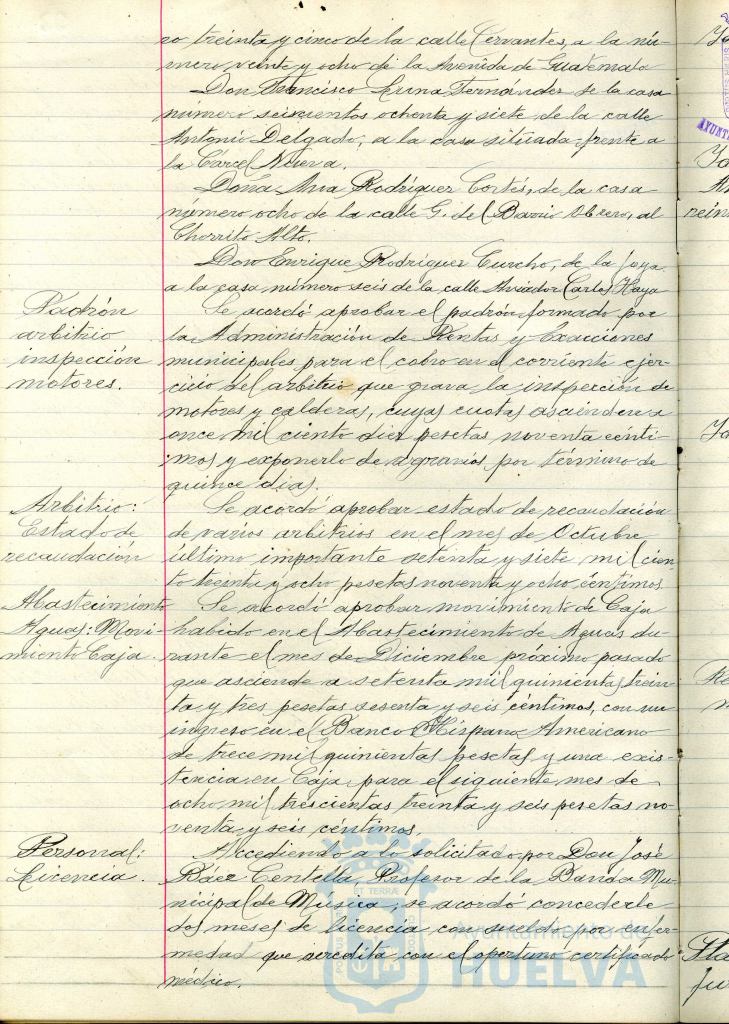 ro treinta y cinco de la calle Cervantes, a la nú-
mero veinte y ocho de la Avenida de Guatemala
Don Francisco Luna Fernández de la casa
número seiscientos ochenta y siete de la calle
Antonio Delgado, a la casa situada frente a
la Cárcel Nueva.
Doña Ana Rodríguez Cortés, de la casa
número ocho de la calle G. del Barrio Obrero, al
Chorrito Alto.
Don Enrique Rodríguez Curcho, de la Joya
a la casa número seis de la calle Aviador Carlos Haya
Padrón
arbitrio
inspección
motores.
Se acordó aprobar el padrón formado por
la Administración de Rentas y Exacciones
municipales para el cobro en el corriente ejer-
cicio del arbitrio que grava la inspección de
motores y calderas, cuyas cuotas ascienden a
once mil ciento diez pesetas noventa cénti-
mos y exponerlo de agravios por término de
quince días.
Arbitrio:
Estado de
recaudación
Se acordó aprobar estado de recaudación
de varios arbitrios en el mes de Octubre
último importante setenta y siete mil cien-
to treinta y ocho pesetas noventa y ocho céntimos
Abastecimiento
Aguas: Movi-
miento Caja.
Se acordó aprobar movimiento de Caja
habido en el Abastecimiento de Aguas du-
rante el mes de Diciembre próximo pasado
que asciende a setenta mil quinientas trein-
ta y tres pesetas sesenta y seis céntimos, con un
ingreso en el Banco Hispano Americano
de trece mil quinientas pesetas y una exis-
tencia en Caja para el siguiente mes de
ocho mil trescientas treinta y seis pesetas no-
venta y seis céntimos.
Personal:
Licencia.
Accediendo a lo solicitado por Don José
Báez Centella, Profesor de la Banda Mu-
nicipal de Música, se acordó concederle
dos meses de licencia con sueldo por enfer-
medad que acredita con el oportuno certificado
médico.
Ayuntamiento de
HUELVA